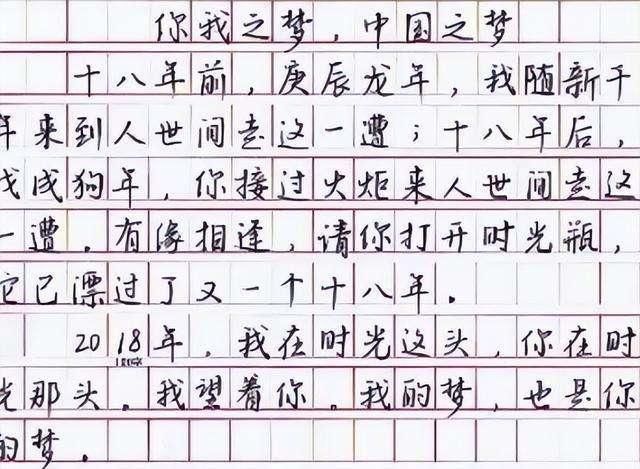 你我之梦，中国之梦
十八年前，庚辰龙年，我随新千
年来到人世间走这一遭；十八年后，
戊戌狗年，你接过火炬来人世间走这
一遭。有缘相逢，请你打开时光瓶，
它已漂过了又一个十八年。
2018年，我在时光这头，你在时
光那头。我望着你。我的梦，也是你
的梦。